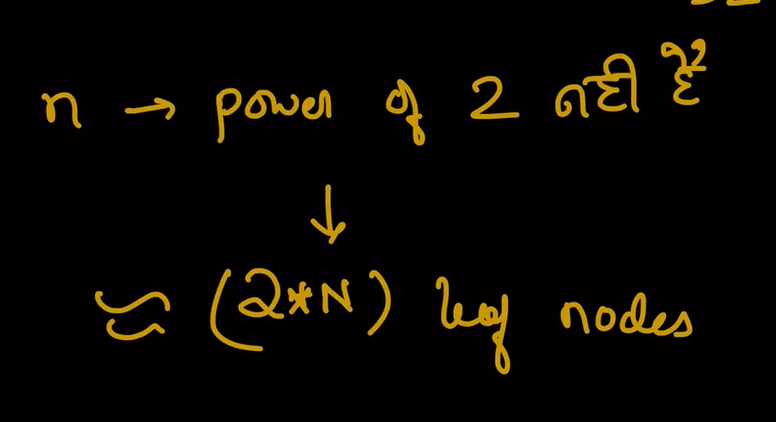 n → power of 2 नहीं है
↓
≈ (2*N) leaf nodes